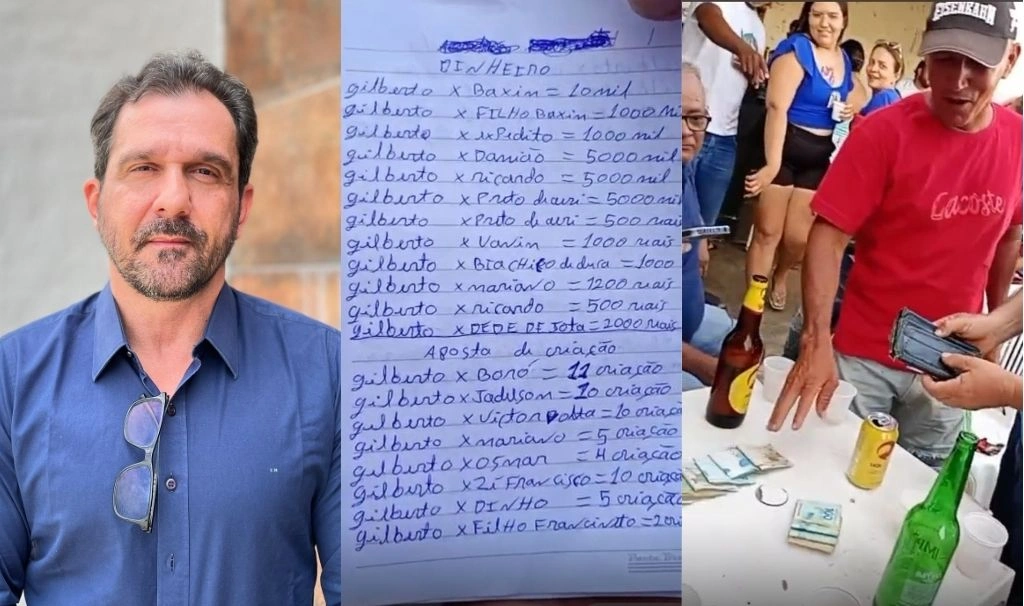 DINHEIRO
gilberto x Baxin = 10 mil
gilberto x FILHO Baxin = 1000 M
gilberto x = 1000 mil
gilberto x Damião = 5000 mil
gilberto x ricardo = 5000 mil
gilberto x Preto de auri = 5000 mi
gilberto x Preto de auri = 500 reais
gilberto x Vavin = 1000 reais
gilberto x = 1000
gilberto x mariano = 1200 reais
gilberto x ricardo = 500 reais
gilberto x DEDE DE Jota = 2000 reais
Aposta de criação
gilberto x Boró = 11 criação
gilberto x Jadilson = 10 criação
gilberto x Victor = 10 criaçã
gilberto x mariano = 5 criação
gilberto x osmar = 4 criação
gilberto x Zé Francisco = 10 criaçã
gilberto x DINHO = 5 criação
gilberto x FilHo = 2 cri
EISENBAHN
Lacoste
SKOL